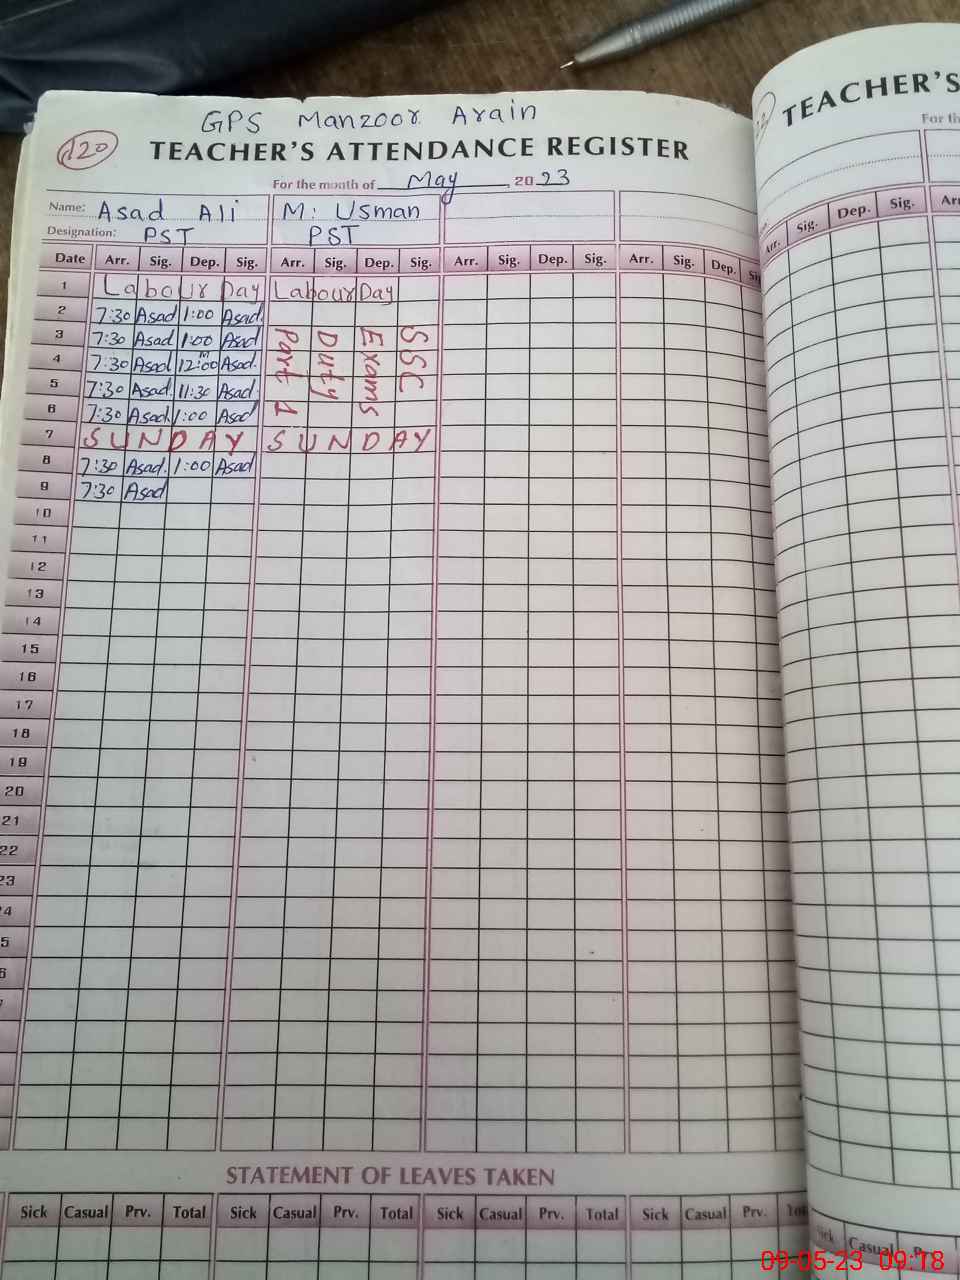 GPS Manzoor Arain
120 TEACHER'S ATTENDANCE REGISTER
For the month of May, 2023
Name: Asad Ali M: Usman
Designation: PST PST
Date Arr. Sig. Dep. Sig. Arr. Sig. Dep. Sig. Arr. Sig. Dep. Sig. Arr. Sig. Dep.
1 Labour Day Labour Day
2 7:30 Asad 1:00 Asad.
3 7:30 Asad 1:00 Asad
4 7:30 Asad 12:00 Asad.
5 7:30 Asad. 11:30 Asad.
6 7:30 Asad. 1:00 Asad
SSC
Exams
Duty
Part 1
7 SUNDAY SUNDAY
8 7:30 Asad. 1:00 Asad
9 7:30 Asad
10
11
12
13
14
15
16
17
18
19
20
21
22
23
STATEMENT OF LEAVES TAKEN
Sick Casual Prv. Total Sick Casual Prv. Total Sick Casual Prv. Total Sick Casual Prv.
TEACHER'S
For th
Arr. Sig. Dep. Sig.
Sick Casual
09-05-23 09:18